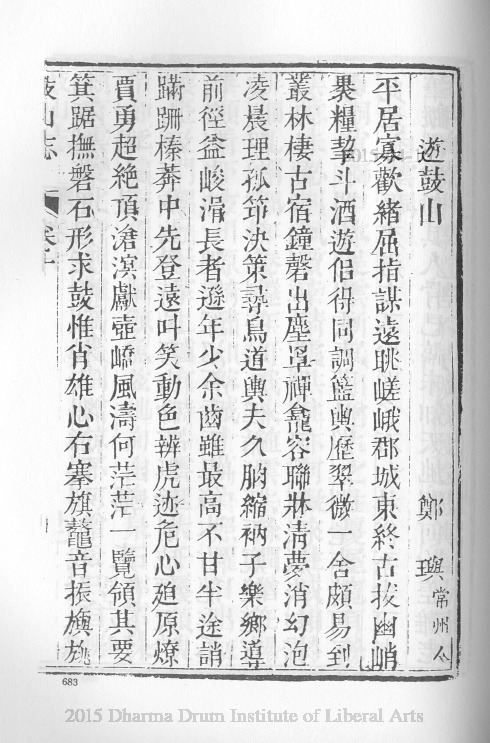 遊鼓山
鄭 璵常州人
平居寡歡緒屈指謀遠眺嵯峨郡城東終古拔幽峭
裹糧挈斗酒遊侶得同調籃輿歷翠微一舍頗易到
叢林棲古宿鐘磬出塵罩禪龕容聯牀清夢消幻泡
凌晨理孤笻決策尋鳥道輿夫久朒縮衲子樂鄉導
前徑益峻滑長者遜年少余齒雖最高不甘半途誚
蹣跚榛莽中先登遠叫笑動色辨虎迹危心廹原燎
賈勇超絕頂滄溟獻壺嶠風濤何茫茫一覽領其要
箕踞撫磐石形求鼓惟肖雄心右搴旗鼇音振旟旐
鼓山志
683
2015 Dharma Drum Institute of Liberal Arts